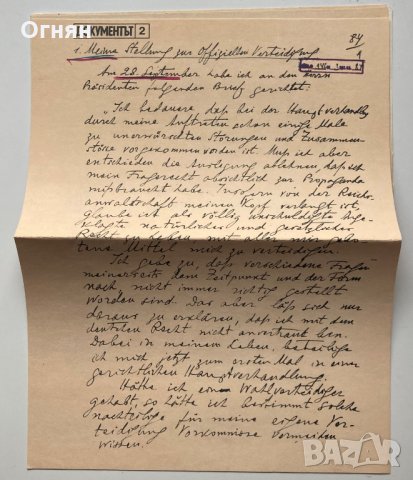 Огнян
ДОКУМЕНТЪТ 2
84
1. Meine Stellung zur Offiziellen Verteidigung
1
Am 28. September habe ich an den Herrn
Präsidenten folgenden Brief gerichtet:
„Ich bedauere, daß bei der Hauptverhandlg
durch meine Auftreten schon einige Male
zu unerwünschten Störungen und Zusammen-
stöße vorgekommen worden ist. Muß ich aber
entschieden die Auslegung ablehnen daß ich
mein Fragerecht absichtlich zur Propaganda
mißbraucht habe. Insofern von der Reichs-
anwaltschaft meinen Kopf verlangt ist,
glaube ich als völlig unschuldigte Ange-
klagte natürlicher und gesetzlicher
Recht zu haben mit allen mir
Mittel mich zu verteidigen.
Ich gebe zu, daß verschiedene Fragen
meinerseits dem Zeitpunkt und der Form
nach nicht immer richtig gestellt
worden sind. Das aber läßt sich nur
daraus zu erklären, daß ich mit dem
deutschen Recht nicht anvertraut bin.
Dabei in meinem Leben, beteilige
ich mich jetzt zum ersten Mal in einer
gerichtlichen Hauptverhandlung.
Hätte ich einen Wahlverteidiger
gehabt, so hätte ich bestimmt solche
nachteilige für meine eigene Ver-
teidigung Vorkommnisse vermeiden
wissen.
BAZAR
bg